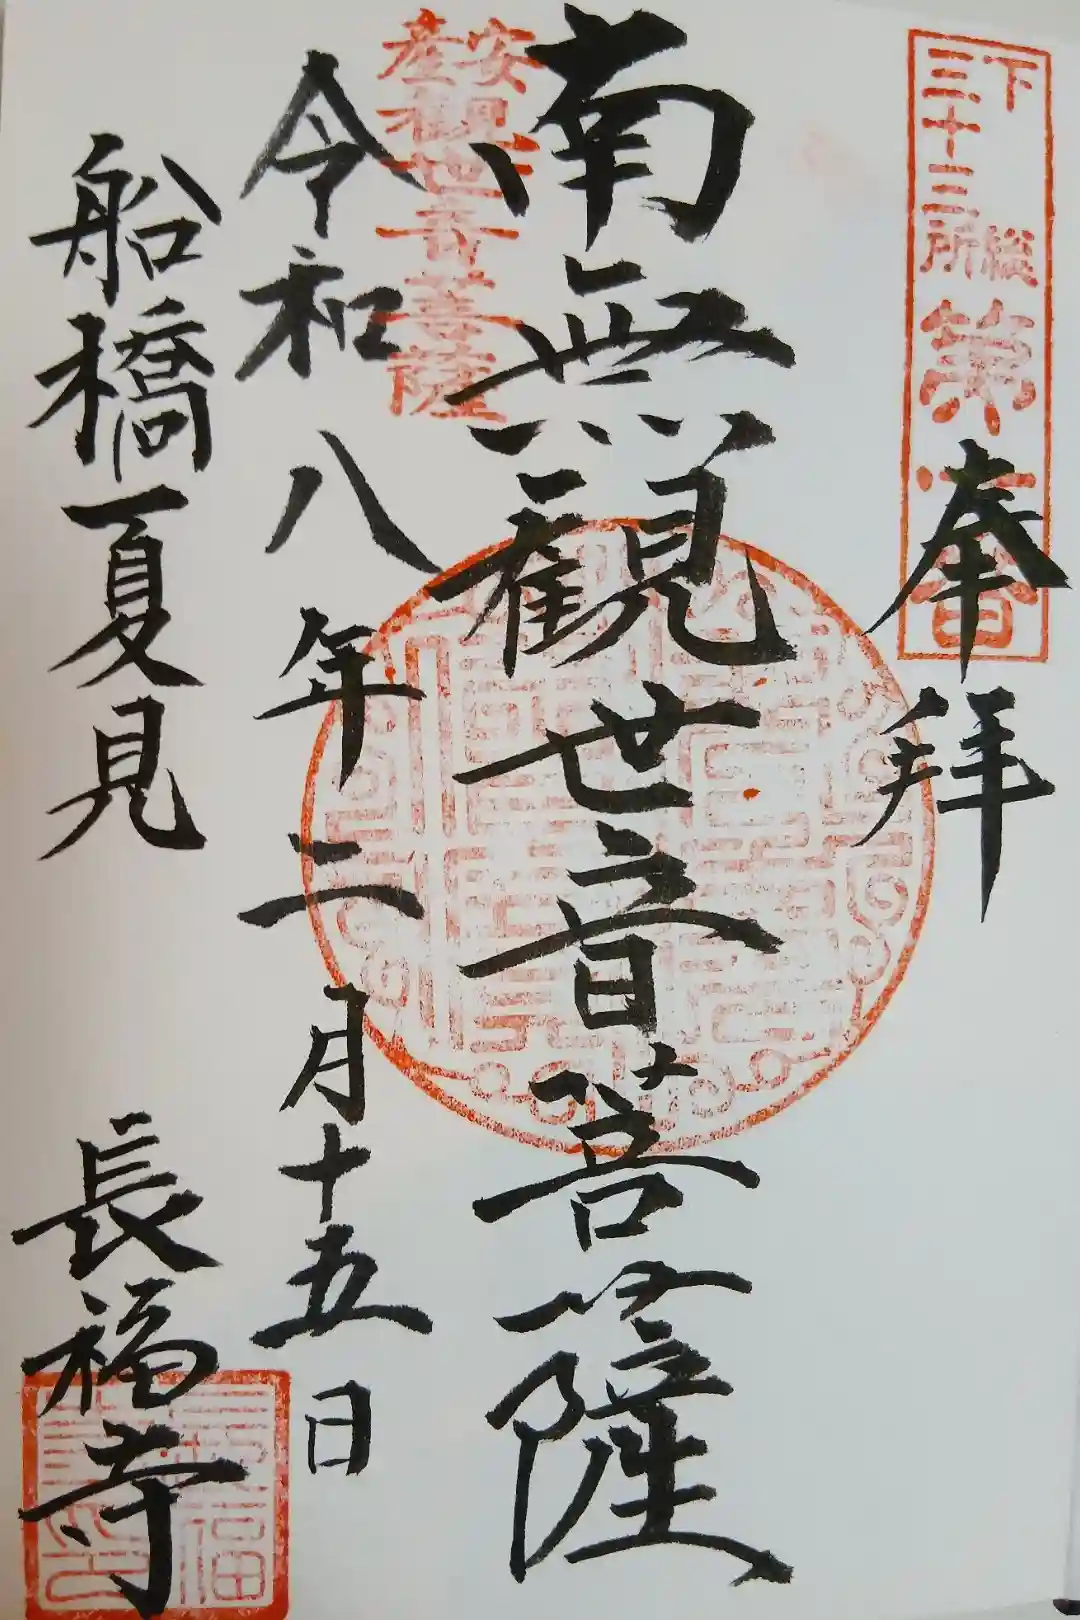 下総三十三所第六番
奉拝
南無観世音菩薩
安産観世音菩薩
令和八年二月十五日
船橋夏見 長福寺